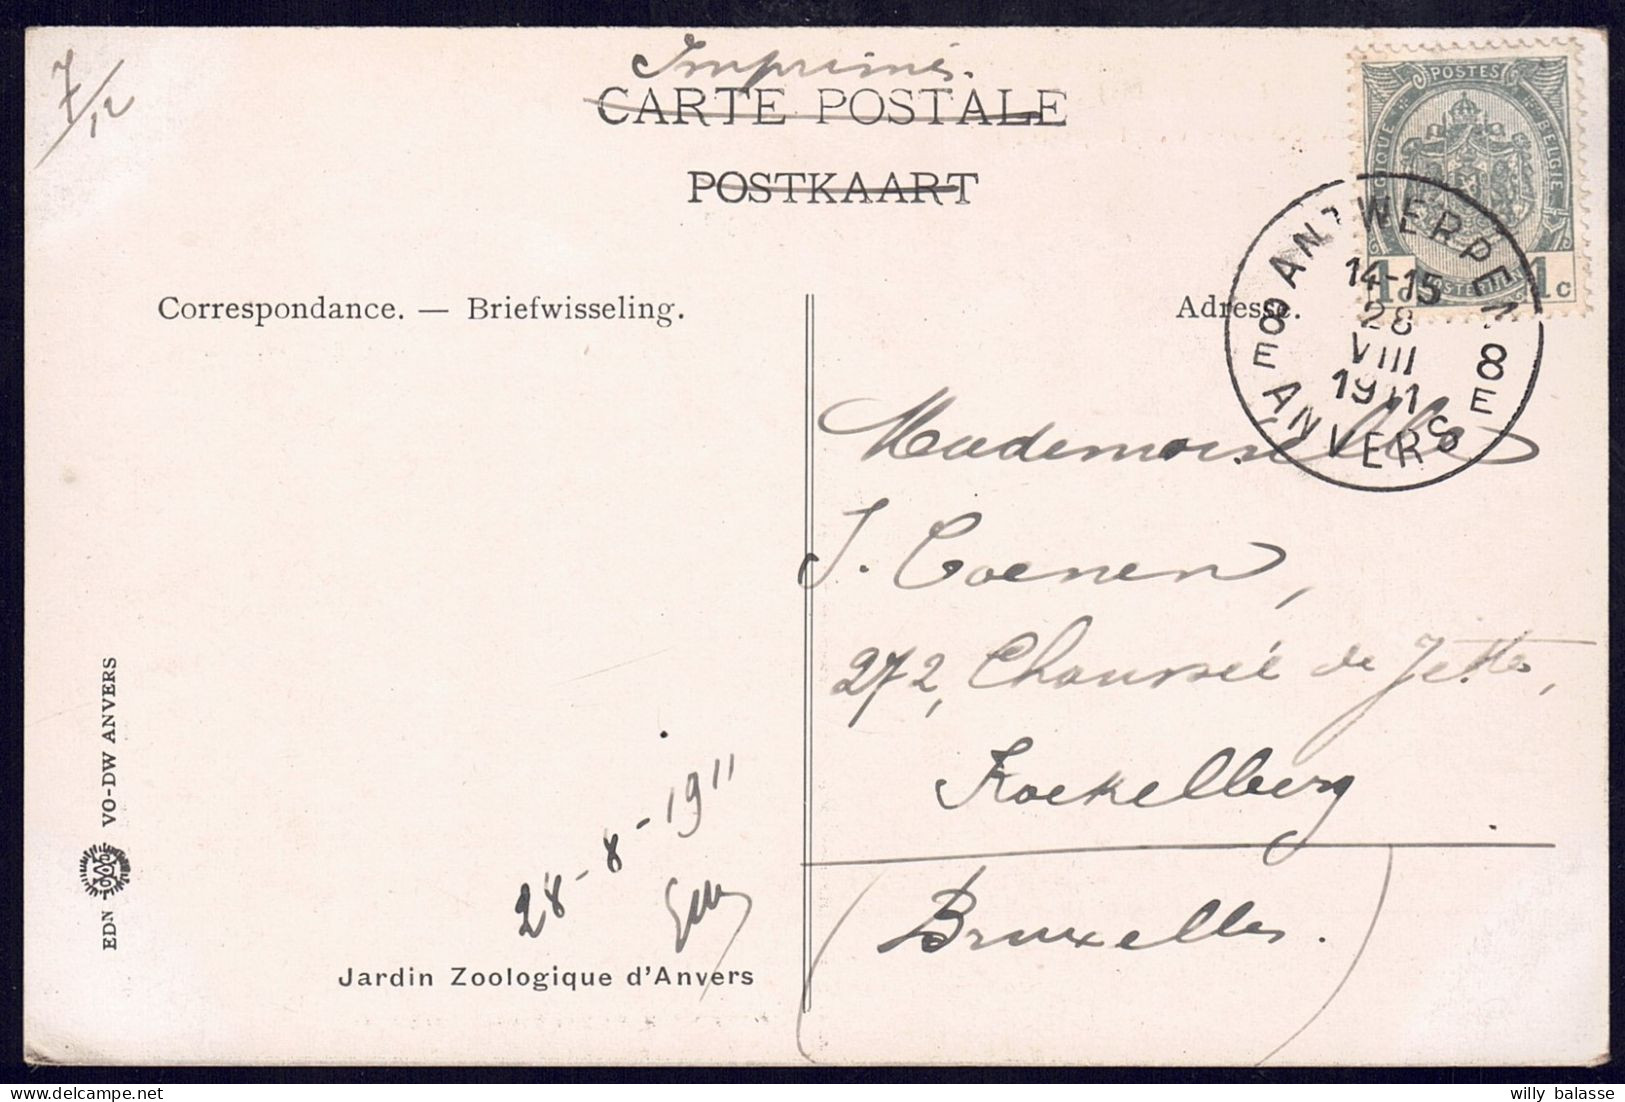 7/12
Imprimé.
CARTE POSTALE
POSTKAART
POSTES
BELGIQUE
BELGIË
1c
1c
Correspondance. — Briefwisseling.
Adresse.
ANTWERPEN
14-15
28
VIII
1911
8 E
8 E
ANVERS
Mademoiselle
J. Coenen,
272, Chaussée de Jette,
Koekelberg
(Bruxelles.)
28-8-1911
Jardin Zoologique d'Anvers
EDN VO-DW ANVERS
willy balasse